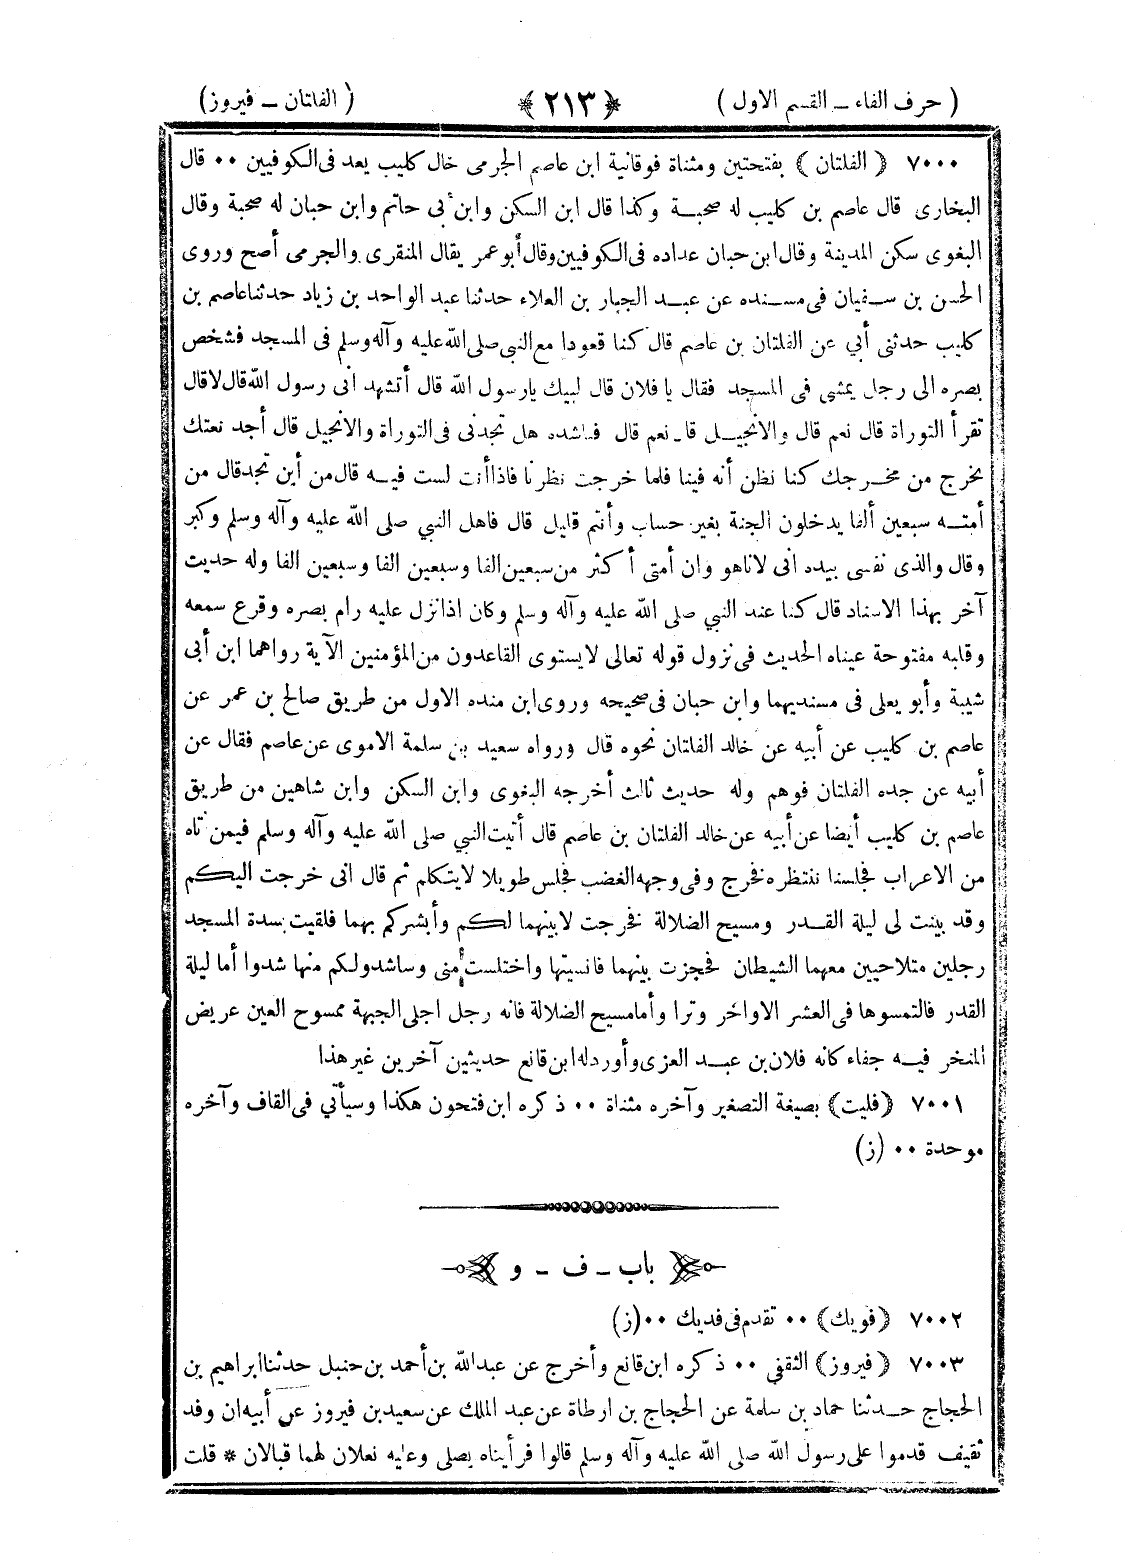 ( حرف الفاء ــ القسم الاول ) ﴿ ٢١٣ ﴾ ( الفلتان ــ فيروز )
٧٠٠٠ ﴿ الفلتان ﴾ بفتحتين ومثناة فوقانية ابن عاصم الجرمى خال كليب يعد فى الكوفيين ٠٠ قال
البخارى قال عاصم بن كليب له صحبة وكذا قال ابن السكن وابن أبى حاتم وابن حبان له صحبة وقال
البغوى سكن المدينة وقال ابن حبان عداده فى الكوفيين وقال أبو عمر يقال المنقرى والجرمى أصح وروى
الحسن بن سفيان فى مسنده عن عبد الجبار بن العلاء حدثنا عبد الواحد بن زياد حدثنا عاصم بن
كليب حدثنى أبي عن الفلتان بن عاصم قال كنا قعودا مع النبى صلى الله عليه وآله وسلم فى المسجد فشخص
بصره الى رجل يمشى فى المسجد فقال يا فلان قال لبيك يارسول الله قال أتشهد انى رسول الله قال لا قال
تقرأ التوراة قال نعم قال والانجيل قال نعم قال فناشده هل تجدنى فى التوراة والانجيل قال أجد نعتك
يخرج من مخرجك كنا نظن أنه فينا فلما خرجت نظرنا فاذا أنت لست فيه قال من أين تجد قال من
أمته سبعين ألفا يدخلون الجنة بغير حساب وأنتم قليل قال فاهل النبي صلى الله عليه وآله وسلم وكبر
وقال والذى نفسى بيده انى لاناهو وان أمتى أكثر من سبعين الفا وسبعين الفا وسبعين الفا وله حديث
آخر بهذا الاسناد قال كنا عند النبي صلى الله عليه وآله وسلم وكان اذا نزل عليه رام بصره وقرع سمعه
وقلبه مفتوحة عيناه الحديث فى نزول قوله تعالى لا يستوى القاعدون من المؤمنين الآية رواهما ابن أبى
شيبة وأبو يعلى فى مسنديهما وابن حبان فى صحيحه وروى ابن منده الاول من طريق صالح بن عمر عن
عاصم بن كليب عن أبيه عن خالد الفلتان نحوه قال ورواه سعيد بن سلمة الاموى عن عاصم فقال عن
أبيه عن جده الفلتان فوهم وله حديث ثالث أخرجه البغوى وابن السكن وابن شاهين من طريق
عاصم بن كليب أيضا عن أبيه عن خالد الفلتان بن عاصم قال أتيت النبي صلى الله عليه وآله وسلم فيمن تاه
من الاعراب فجلسنا ننتظره فخرج وفى وجهه الغضب فجلس طويلا لا يتكلم ثم قال انى خرجت اليكم
وقد بينت لى ليلة القدر ومسيح الضلالة فخرجت لابينهما لكم وأبشركم بهما فلقيت بسدة المسجد
رجلين متلاحيين معهما الشيطان فحجزت بينهما فانسيتها واختلست منى وساشدولكم منها شدوا أما ليلة
القدر فالتمسوها فى العشر الاواخر وترا وأما مسيح الضلالة فانه رجل اجلى الجبهة ممسوح العين عريض
المنخر فيه جفاء كانه فلان بن عبد العزى وأورد له ابن قانع حديثين آخرين غير هذا
٧٠٠١ ﴿ فليت ﴾ بصيغة التصغير وآخره مثناة ٠٠ ذكره ابن فتحون هكذا وسيأتي فى القاف وآخره
موحدة ٠٠ (ز)
باب ــ ف ــ و
٧٠٠٢ ﴿ فويك ﴾ ٠٠ تقدم فى فديك ٠٠ (ز)
٧٠٠٣ ﴿ فيروز ﴾ الثقفي ٠٠ ذكره ابن قانع وأخرج عن عبد الله بن أحمد بن حنبل حدثنا ابراهيم بن
الحجاج حدثنا حماد بن سلمة عن الحجاج بن ارطاة عن عبد الملك عن سعيد بن فيروز عن أبيه ان وفد
ثقيف قدموا على رسول الله صلى الله عليه وآله وسلم قالوا فرأيناه يصلى وعليه نعلان لهما قبالان * قلت